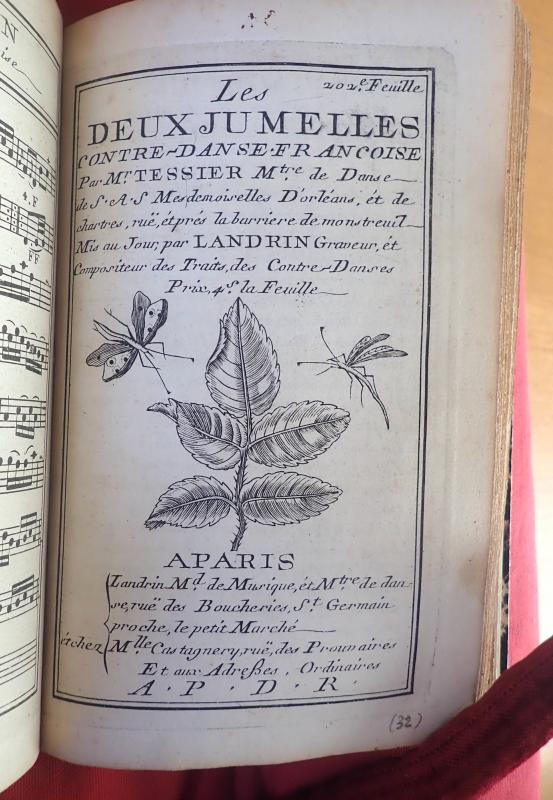 202.e Feuille
Les
DEUX JUMELLES
CONTRE-DANSE-FRANCOISE
Par Mr. TESSIER Mtre de Danse
de S.A.S Mesdemoiselles D'orléans, ét de
chartres, ruë, ét prés la barriere de monstreuil
Mis au Jour, par LANDRIN Graveur, ét
Compositeur des Traits, des Contre-Danses
Prix, 4s. la Feuille
APARIS
Landrin Md. de Musique, ét Mtre de dan-
se, ruë des Boucheries, St. Germain
proche, le petit Marché
ét chez Mlle Castagnery, ruë, des Prouvaires
Et aux Adreßes, Ordinaires
A. P. D. R.
(32)
N
ise
4.F
FF